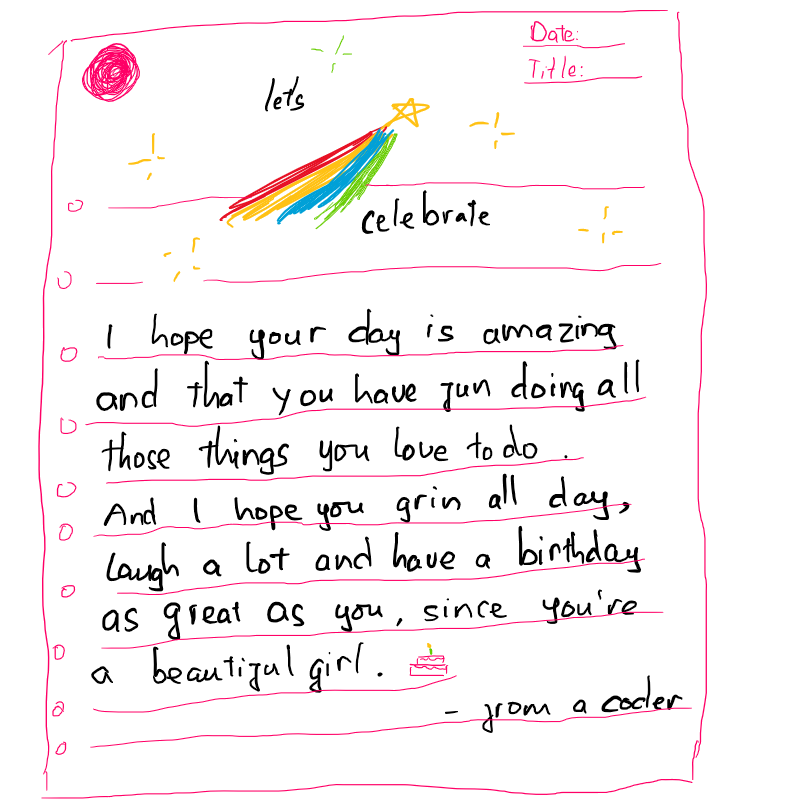 Date:
Title:
let's
celebrate
I hope your day is amazing
and that you have fun doing all
those things you love to do.
And I hope you grin all day,
laugh a lot and have a birthday
as great as you, since you're
a beautiful girl.
- from a coder